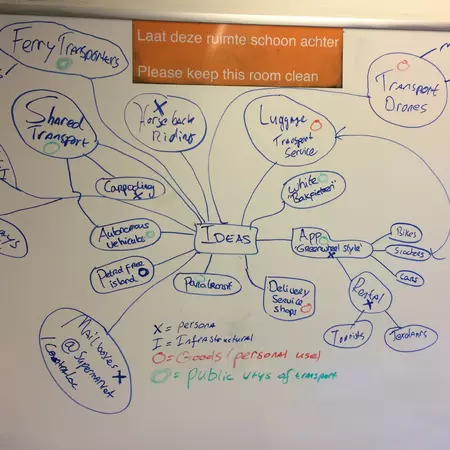 Laat deze ruimte schoon achter
Please keep this room clean
Ferry Transporters
Shared
Transport
X
Horse back
Riding
Luggage
Transport
Service
Transport
Drones
White
"Bakfietsen"
Cappooling
X
Autonomous
Vehicules
IDEAS
App
"Greenwheel style"
X
Bikes
Scooters
Cars
Petrol Free
island
Paratransit
Delivery
Service
Shops
Rental
X
Tourists
Mailboxes
@Supermarket
X
X = persona
I = Infrastructural
O = Goods (personal use)
O = public ways of transport